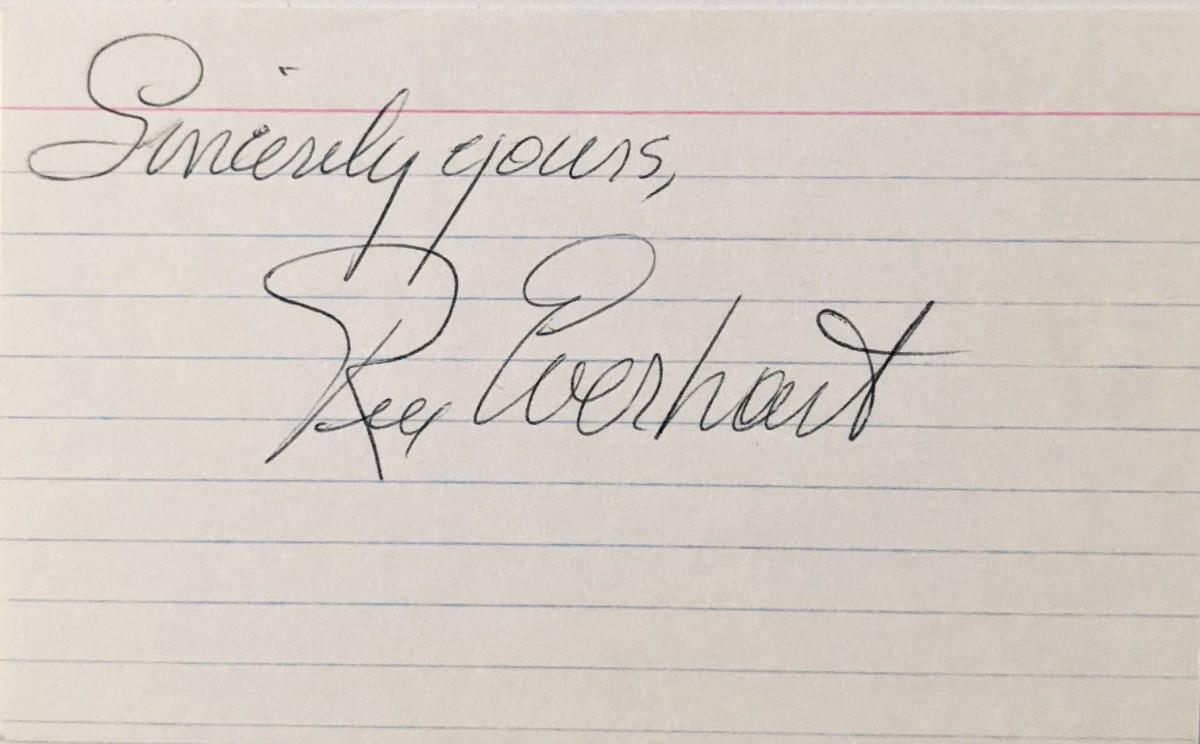 Sincerely yours,
Rex Everhart